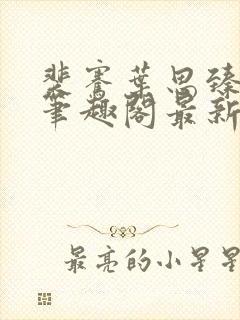 裴骞葉思臻
笔趣阁最新
最亮的小星星